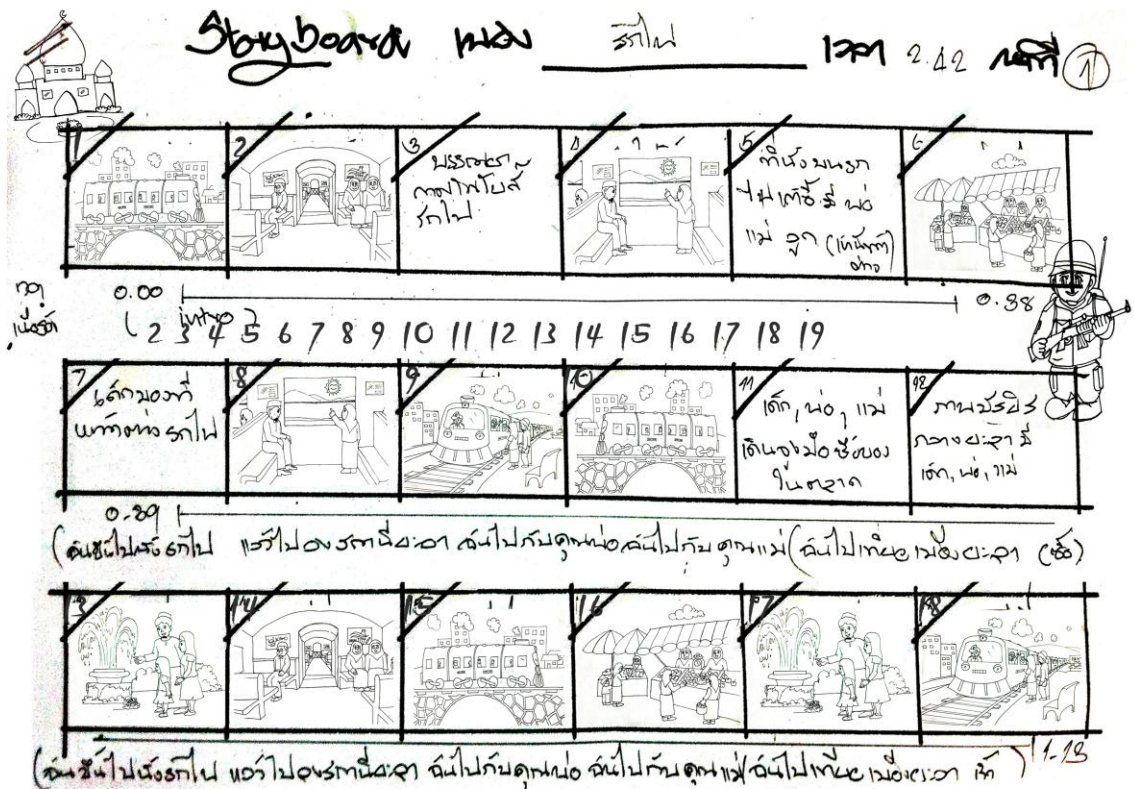 Storyboard เพลง รถไฟ เวลา 2.42 หน้าที่ 1
1
2
3
บรรยากาศ
ภายในโบกี้
รถไฟ
4
5
ที่นั่งบนรถ
ไฟเก้าอี้ มี พ่อ
แม่ ลูก
6
เวลา 0.00 0.38
เนื้อร้อง ( intro )
2 3 4 5 6 7 8 9 10 11 12 13 14 15 16 17 18 19
7
เด็กมองที่
หน้าต่าง รถไฟ
8
9
10
11
เด็ก, พ่อ, แม่
เดินจูงมือซื้อของ
ในตลาด
12
ภาพมัสยิส
กลางยะลา มี
เด็ก, พ่อ, แม่
0.39
(ฉันขึ้นไปนั่งรถไฟ แล้วไปลงสถานียะลา ฉันไปกับคุณพ่อ ฉันไปกับคุณแม่ (ฉันไปเที่ยวเมืองยะลา (ซ้ำ)
13
14
15
16
17
18
(ฉันขึ้นไปนั่งรถไฟ แล้วไปลงสถานียะลา ฉันไปกับคุณพ่อ ฉันไปกับคุณแม่ (ฉันไปเที่ยวเมืองยะลา ซ้ำ ) 1.13